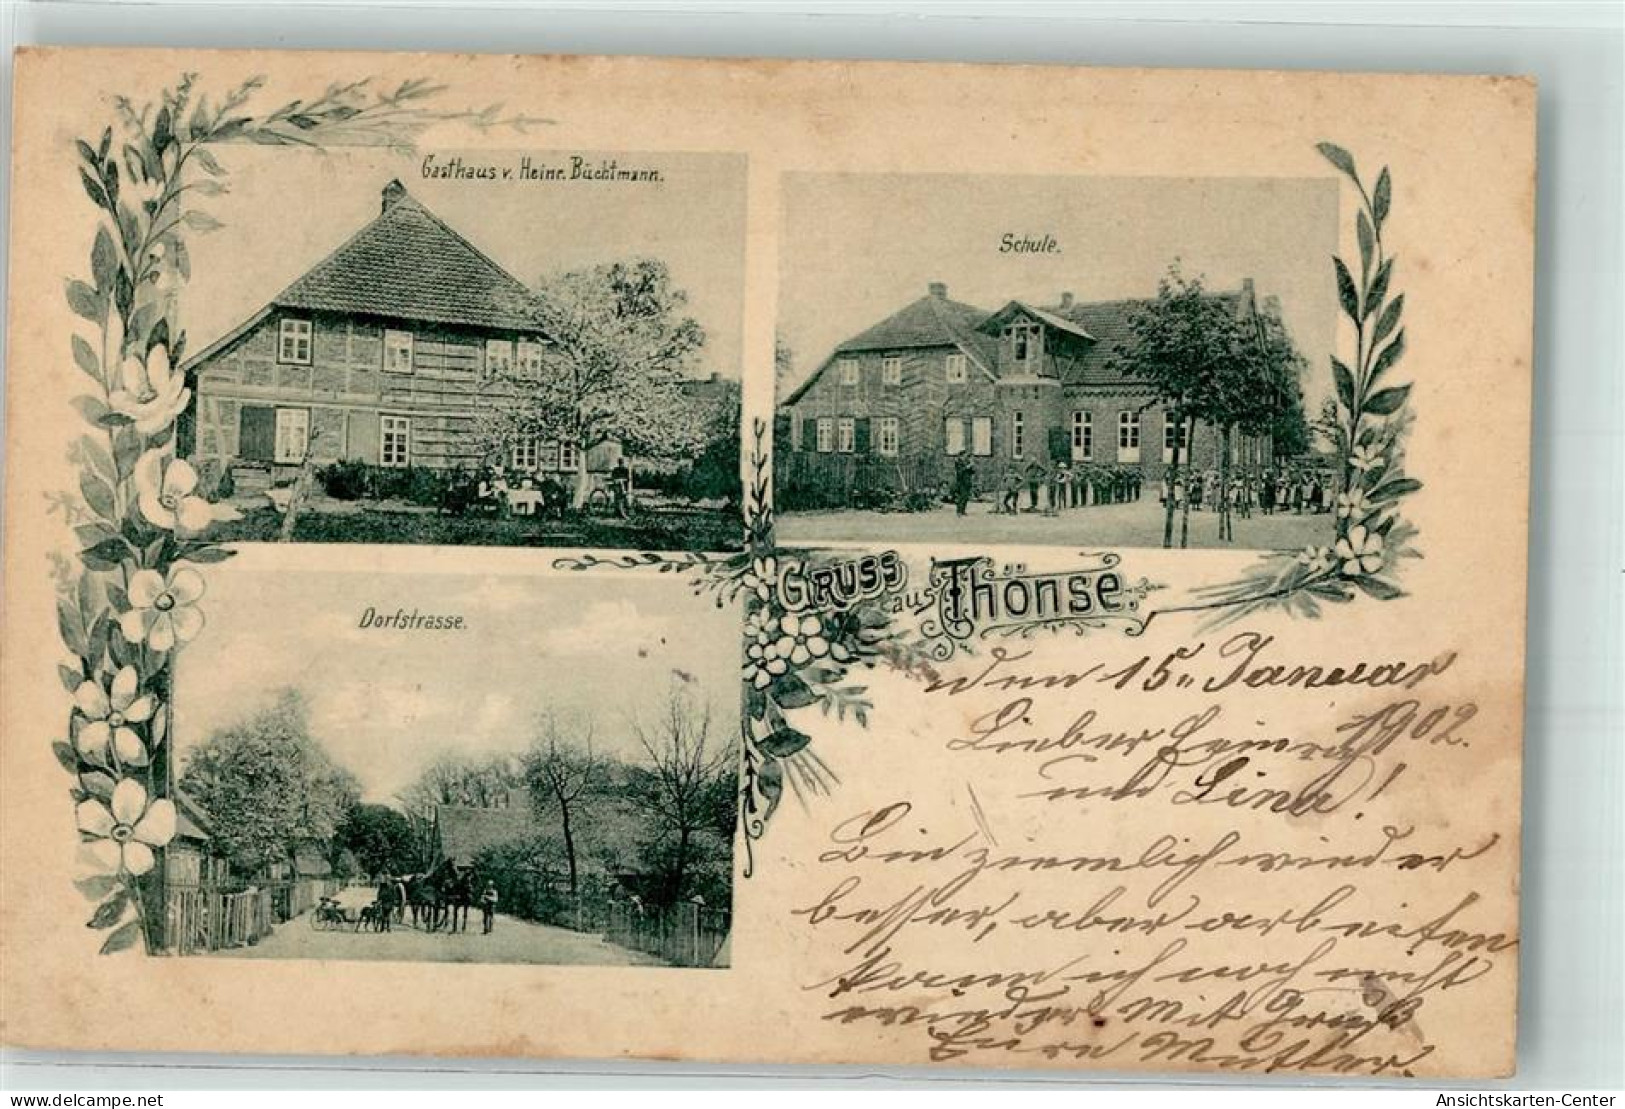 Gasthaus v. Heinr. Büchtmann.
Schule.
Dorfstrasse.
GRUSS aus Thönse.
den 15., Januar
1902.
Lieber Heinrich
und Lina!
Bin ziemlich wieder
besser, aber arbeiten
kann ich noch nicht
wieder. Mit Gruß
Eure Mutter.
www.delcampe.net
Ansichtskarten-Center